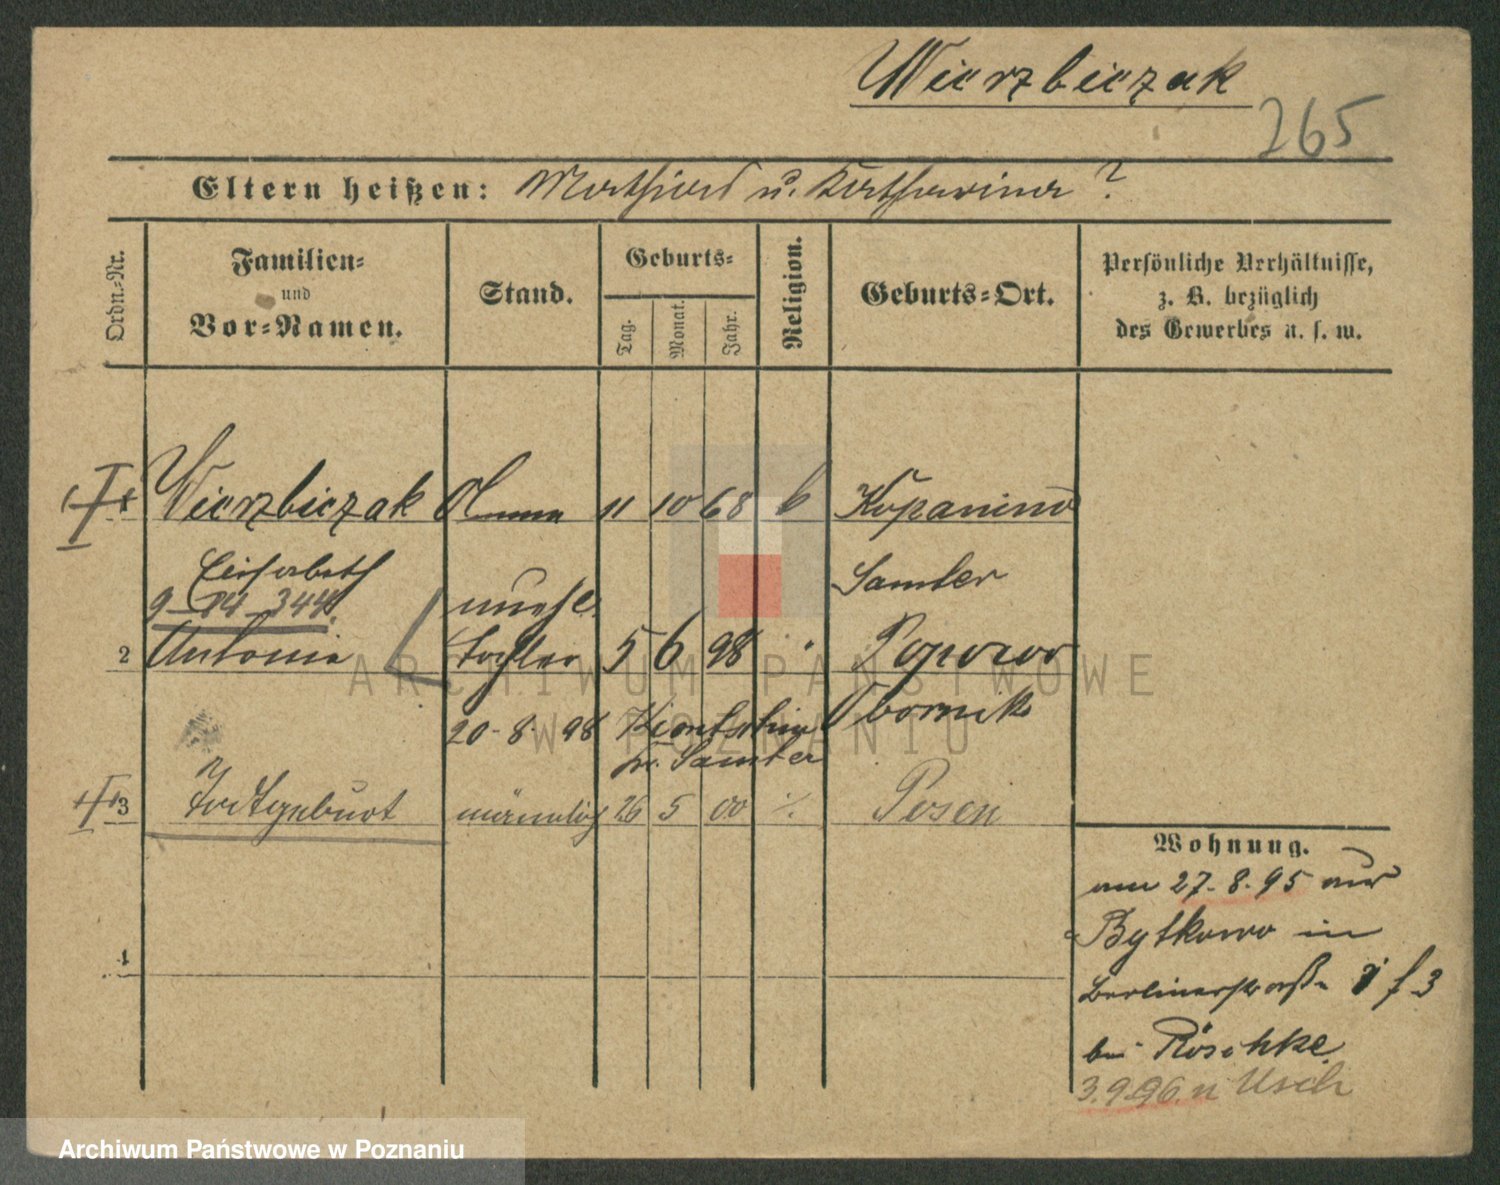 Wierzbiczak
265
Eltern heißen: Mathias u. Katharina ?
Ordn.-Nr.
Familien-
und
Vor-Namen.
Stand.
Geburts-
Tag.
Monat.
Jahr.
Religion.
Geburts-Ort.
Persönliche Verhältnisse,
z. B. bezüglich
des Gewerbes u. s. w.
Wierzbiczak 11 10 68 k Kopanino
Elisabeth Samter
9 14 344
unehl.
2 Antonia Tochter 5 6 98 " Popowo
Obornik
20-8-98
Samter
3 Todtgeburt männlich 26 5 00 ./. Posen
4
Wohnung.
am 27.8.95 aus
Bytkowo in
Berlinerstraße
bei Röschke
3.9.96. n Usch
ARCHIWUM PAŃSTWOWE
W POZNANIU
Archiwum Państwowe w Poznaniu